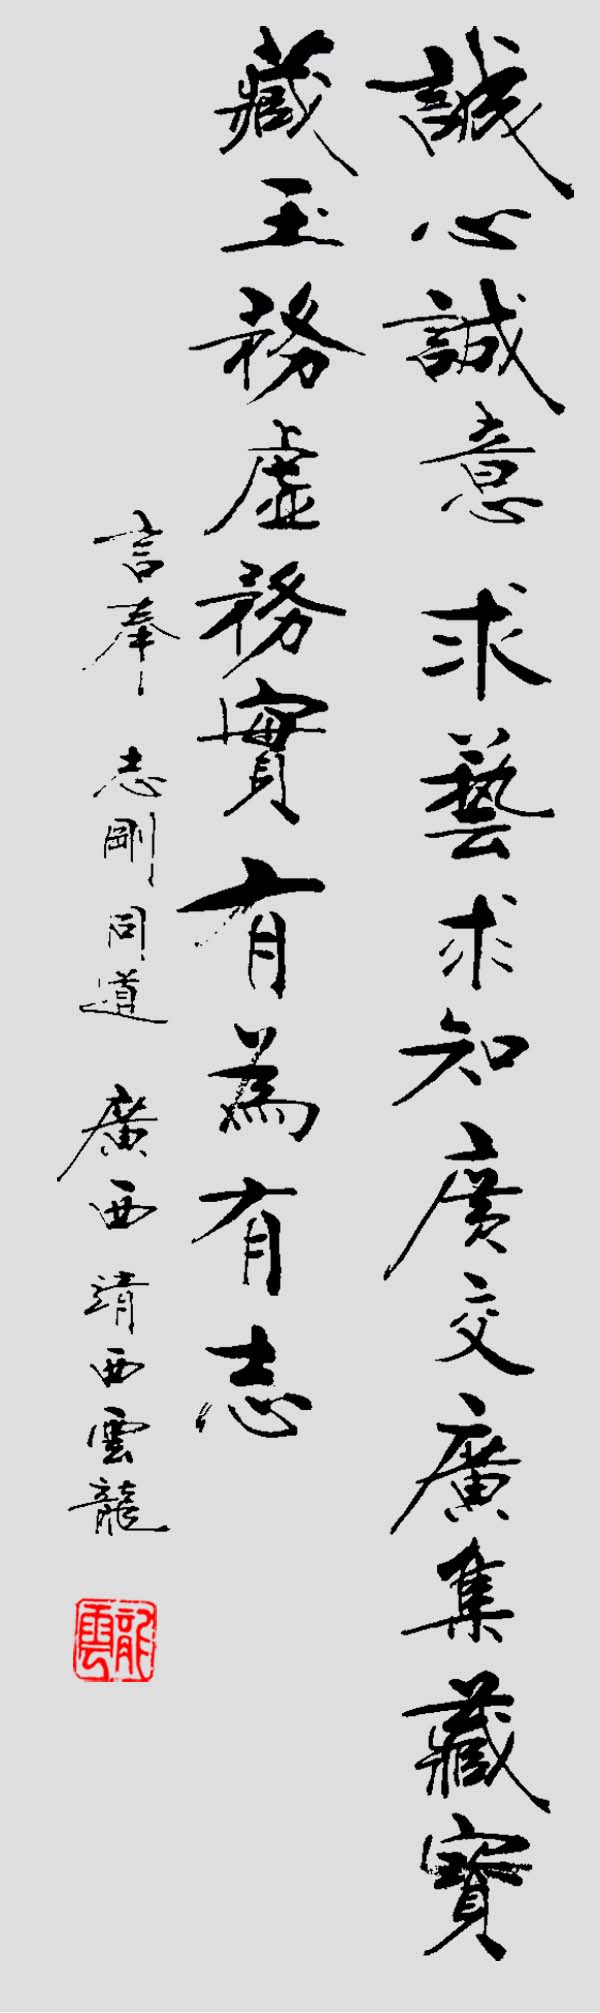 誠心誠意求藝求知廣交廣集藏寶
藏玉務虛務實有為有志
言奉 志剛同道 廣西靖西雲龍
雲龍